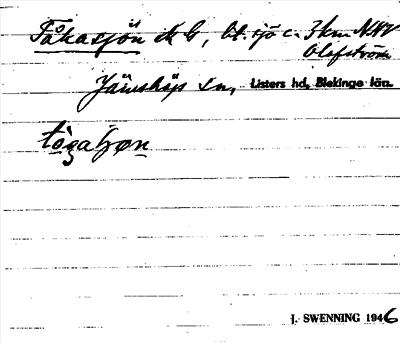 Tåkasjön N G, bl. sjö c. 3 km NNV
Olofström
Jämshögs sn, Listers hd, Blekinge län.
J. SWENNING 1946